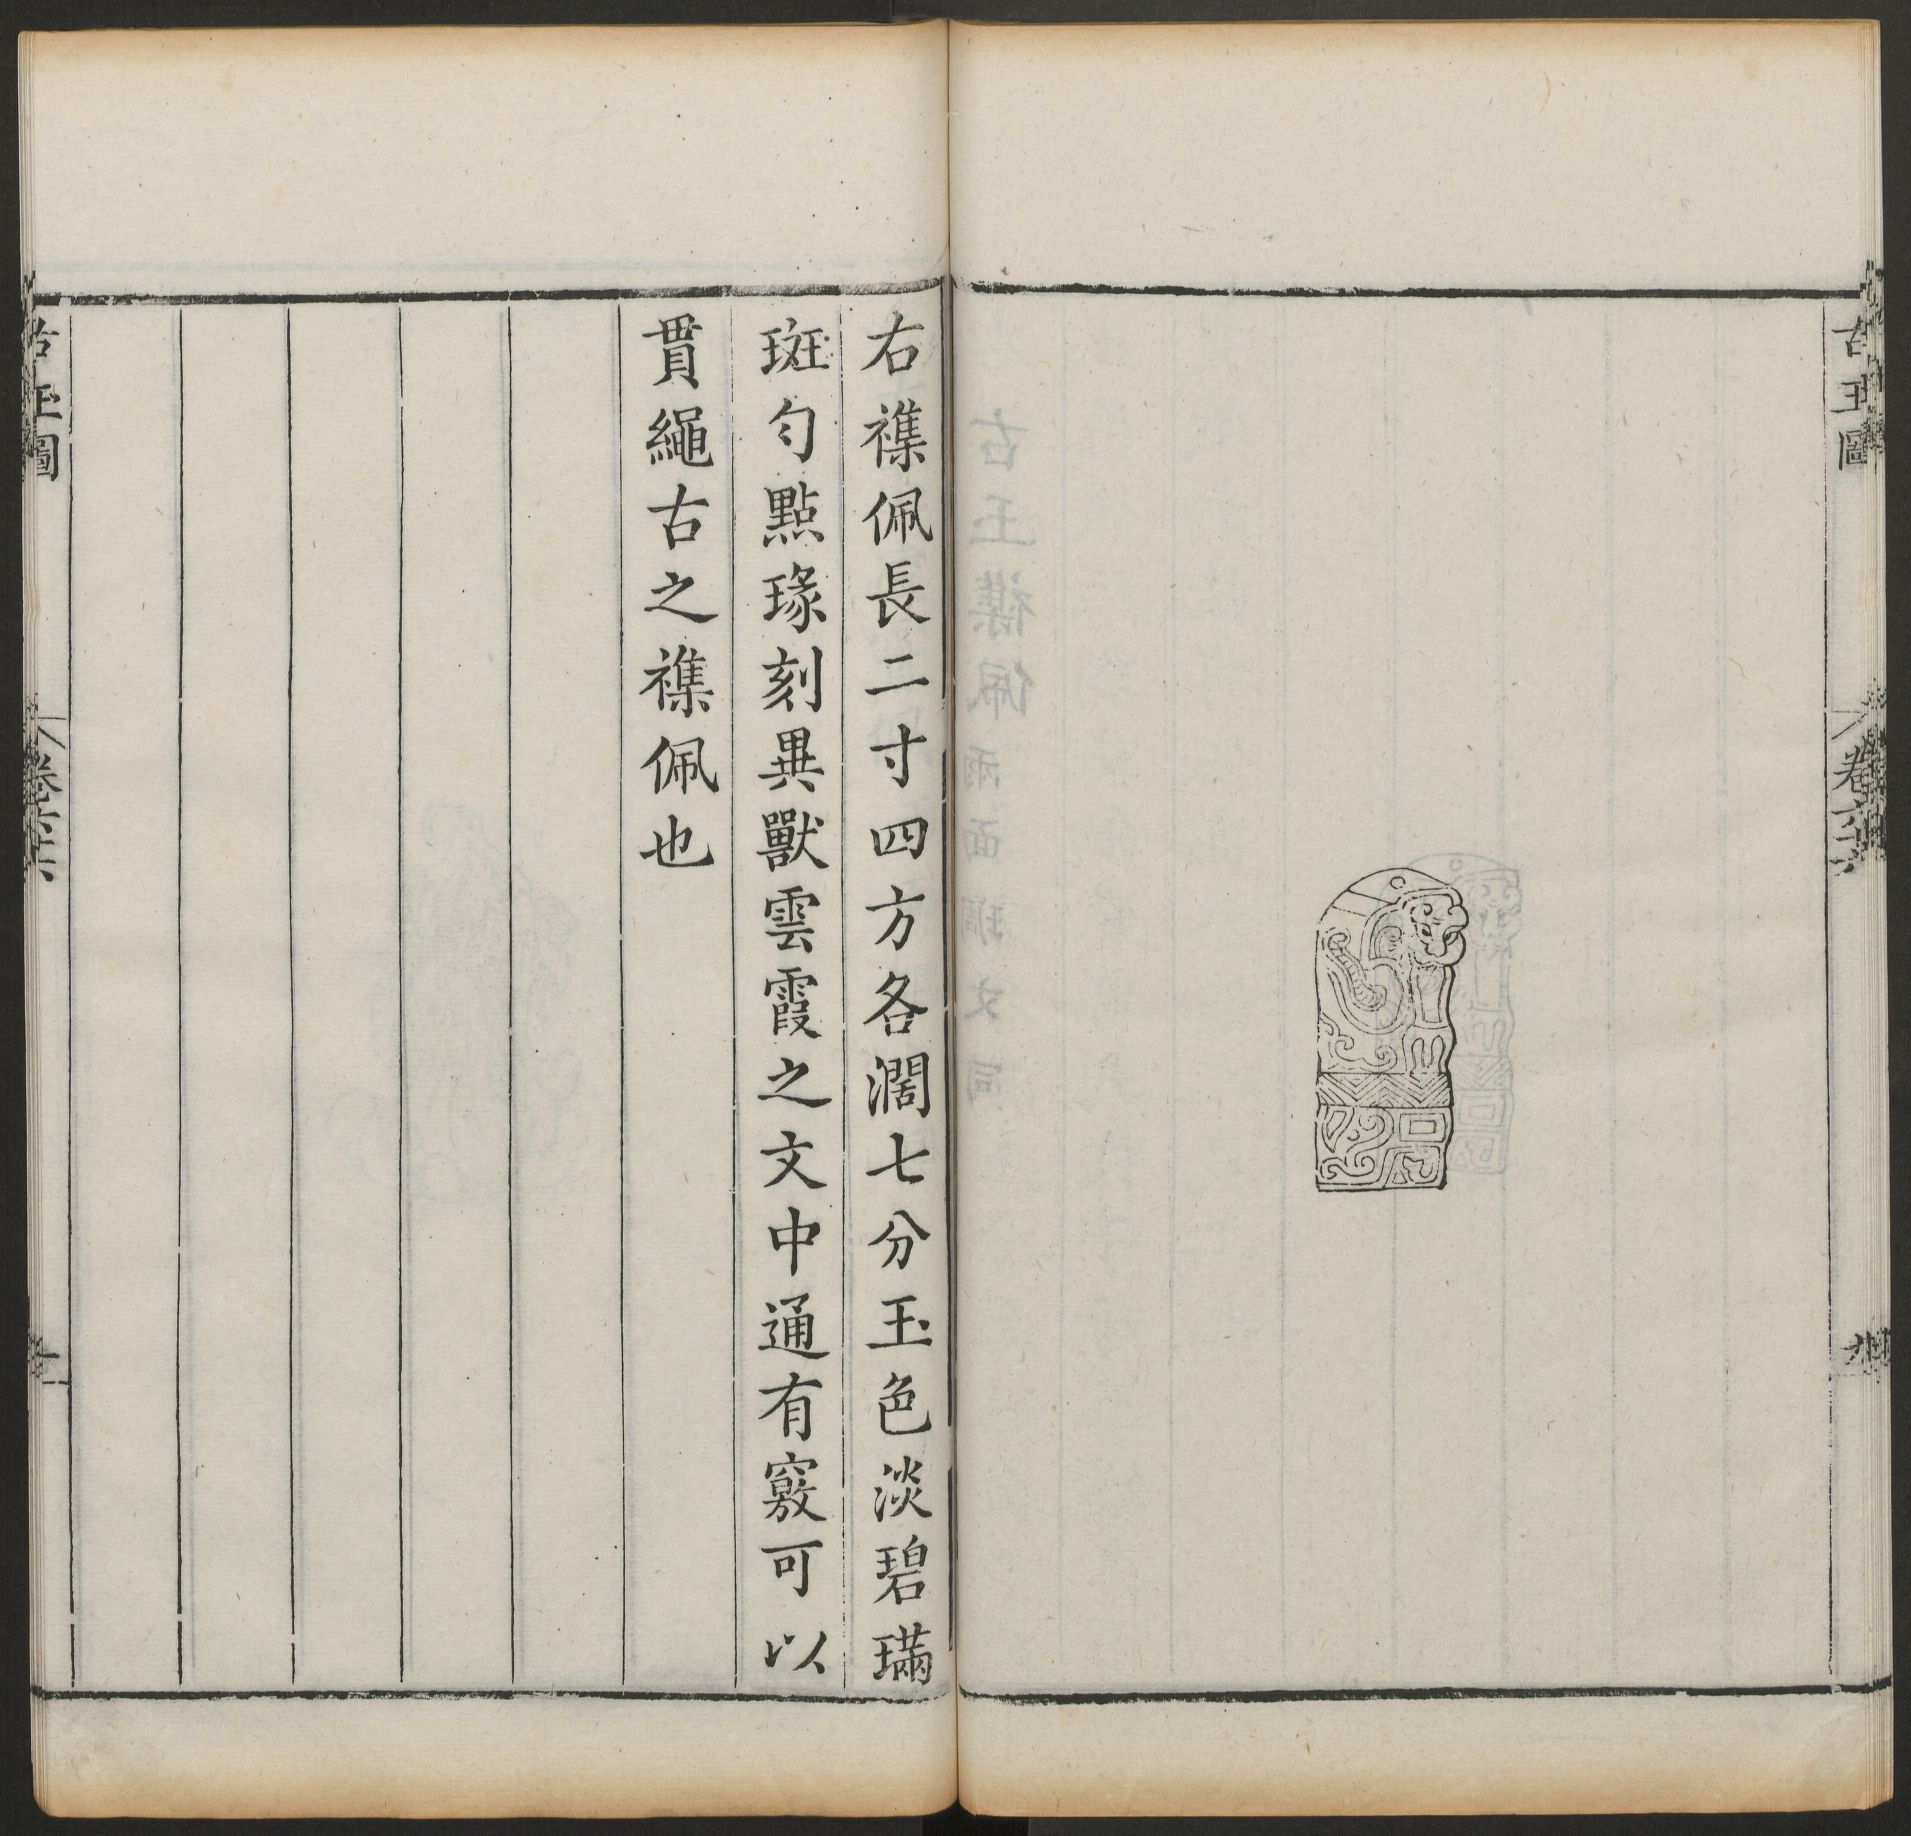 古玉圖
卷六十六
九
右襍佩長二寸四方各濶七分玉色淡碧璊
斑勻點瑑刻異獸雲霞之文中通有竅可以
貫繩古之襍佩也
古玉圖
十